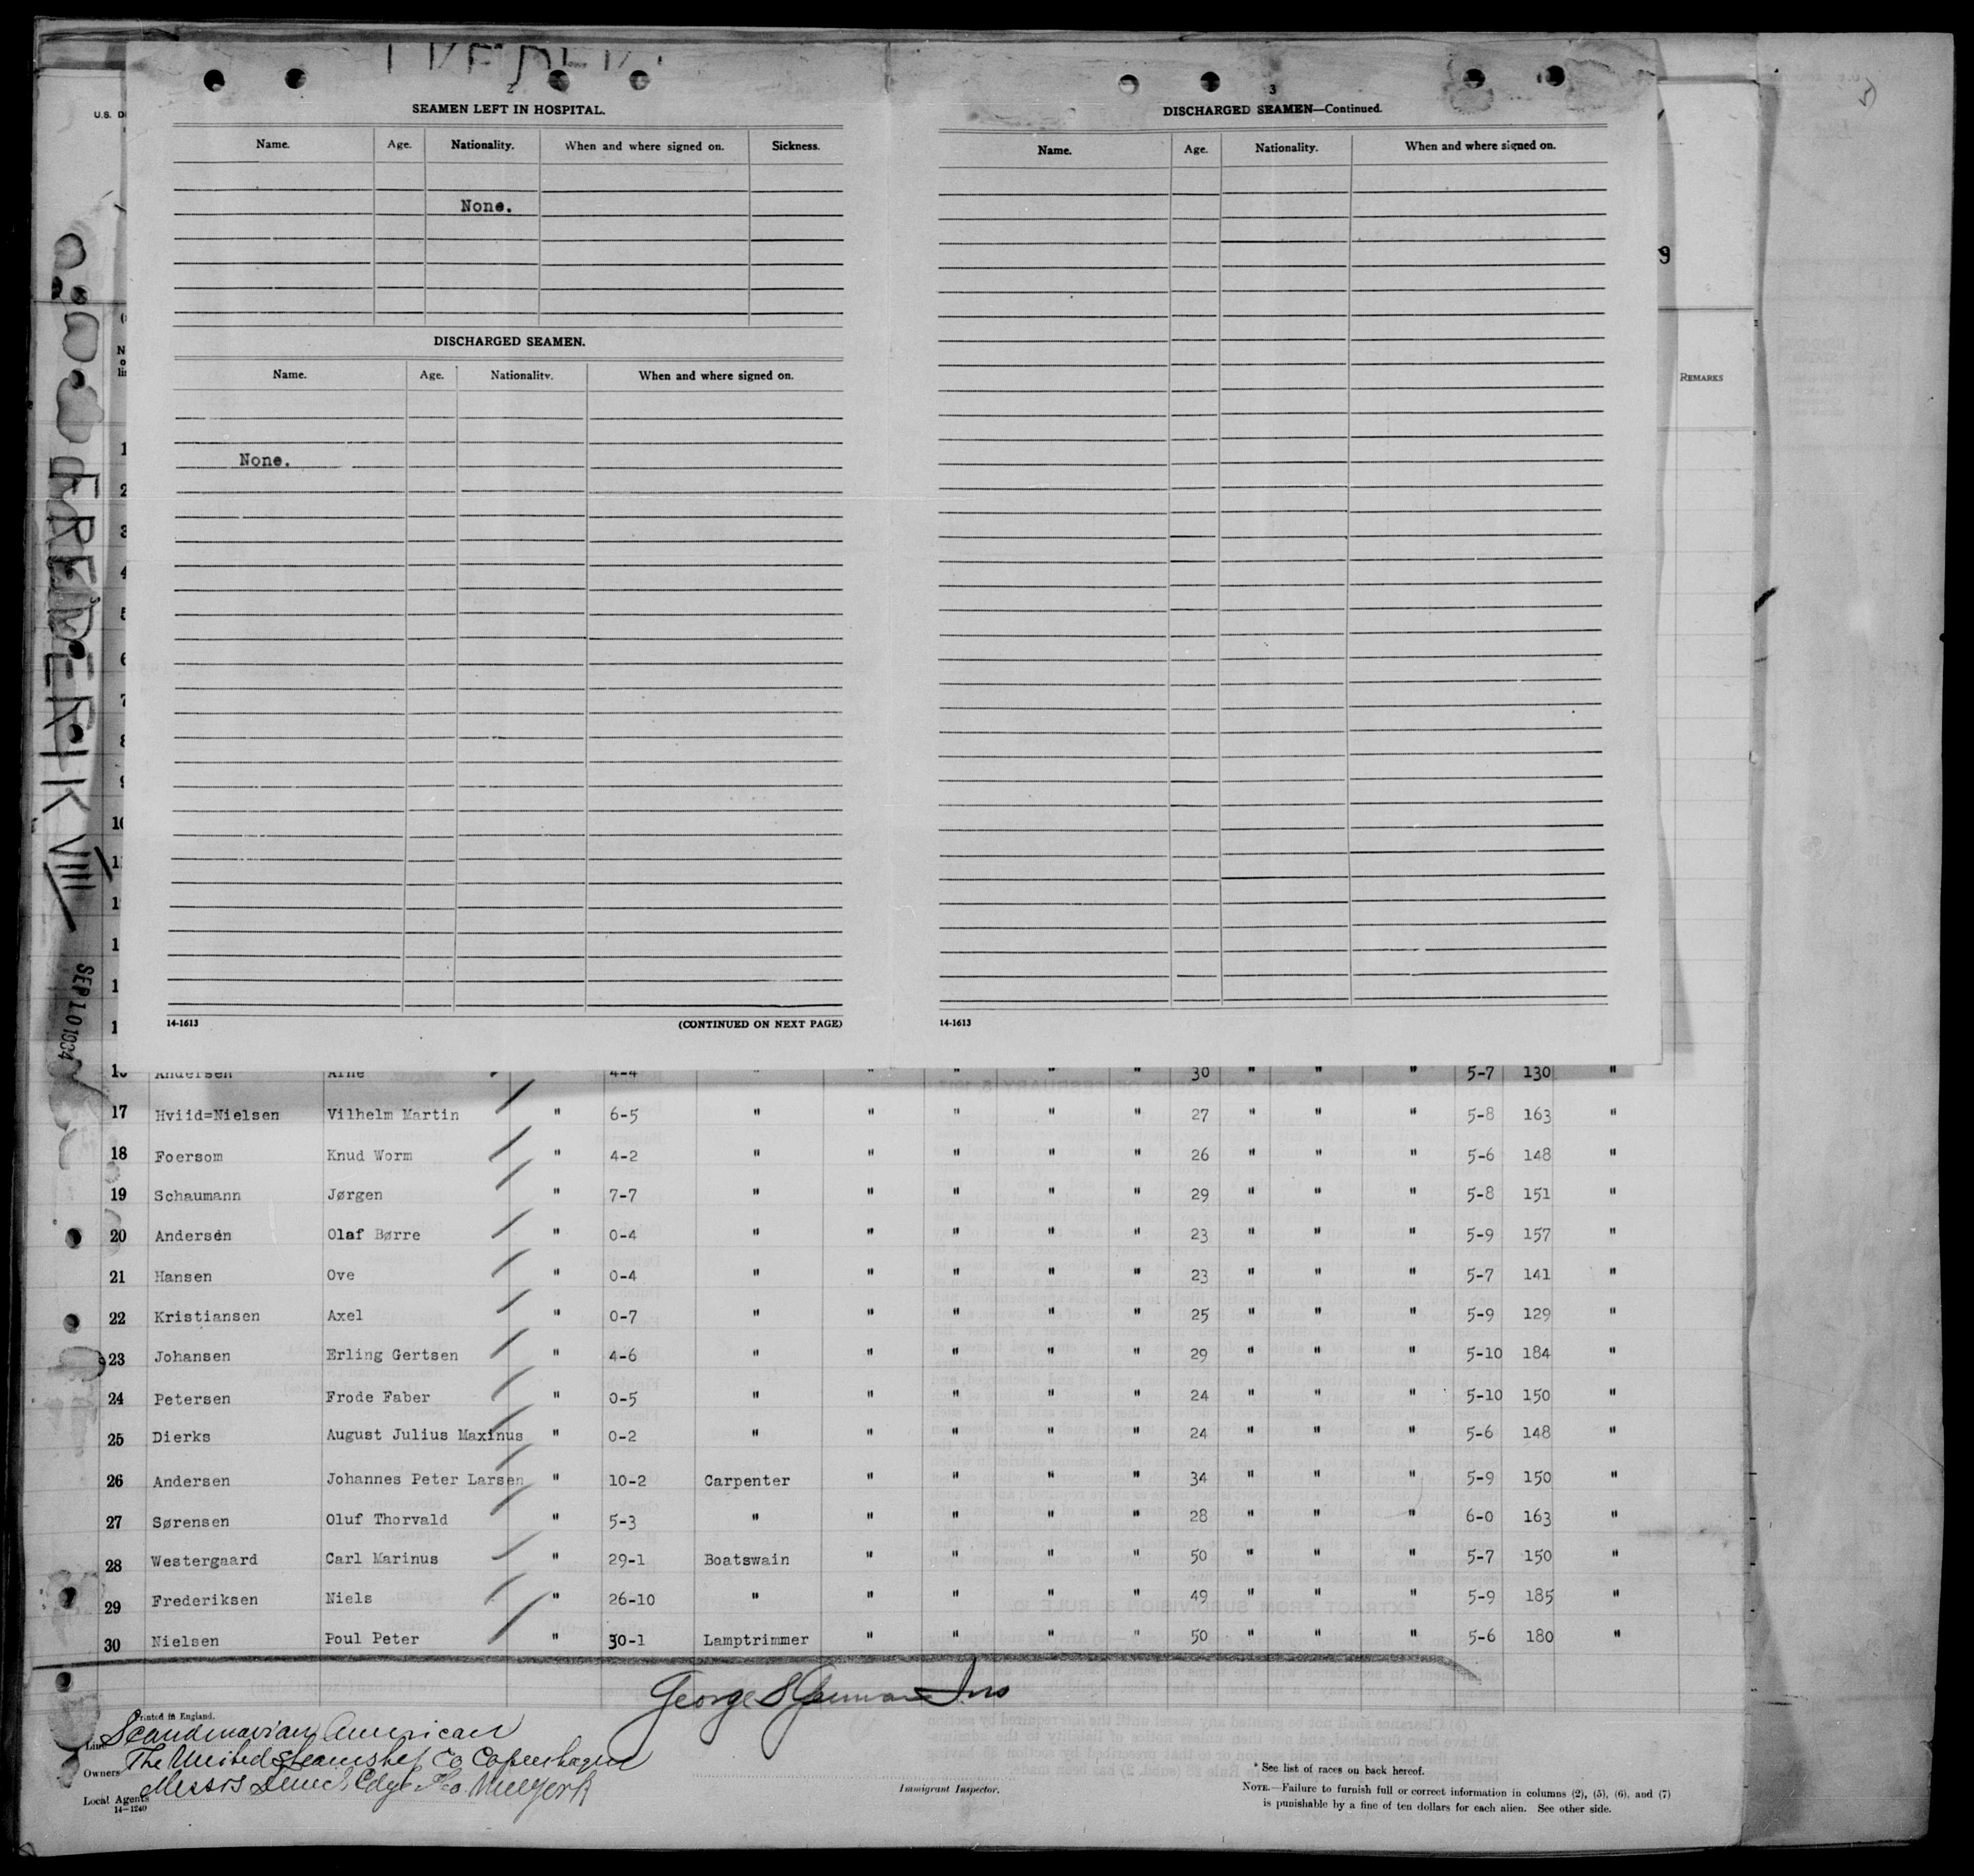 2
SEAMEN LEFT IN HOSPITAL.
Name. Age. Nationality. When and where signed on. Sickness.
None.
DISCHARGED SEAMEN.
Name. Age. Nationality. When and where signed on.
None.
14-1613 (CONTINUED ON NEXT PAGE)
3
DISCHARGED SEAMEN—Continued.
Name. Age. Nationality. When and where signed on.
14-1613
U.S.
9
REMARKS
FREDERIK VIII
SEP 10 1934
1
2
3
4
5
6
7
8
9
16 Andersen Arne 4-4 " " " " " 30 " " " 5-7 130 "
17 Hviid=Nielsen Vilhelm Martin " 6-5 " " " " 27 " " " 5-8 163 "
18 Foersom Knud Worm " 4-2 " " " " 26 " " " 5-6 148 "
19 Schaumann Jørgen " 7-7 " " " " 29 " " " 5-8 151 "
20 Andersen Olaf Børre " 0-4 " " " " 23 " " " 5-9 157 "
21 Hansen Ove " 0-4 " " " " 23 " " " 5-7 141 "
22 Kristiansen Axel " 0-7 " " " " 25 " " " 5-9 129 "
23 Johansen Erling Gertsen " 4-6 " " " " 29 " " " 5-10 184 "
24 Petersen Frode Faber " 0-5 " " " " 24 " " " 5-10 150 "
25 Dierks August Julius Maxinus " 0-2 " " " " 24 " " " 5-6 148 "
26 Andersen Johannes Peter Larsen " 10-2 Carpenter " " " " 34 " " " 5-9 150 "
27 Sørensen Oluf Thorvald " 5-3 " " " " " 28 " " " 6-0 163 "
28 Westergaard Carl Marinus " 29-1 Boatswain " " " " 50 " " " 5-7 150 "
29 Frederiksen Niels " 26-10 " " " " " 49 " " " 5-9 185 "
30 Nielsen Poul Peter " 30-1 Lamptrimmer " " " " 50 " " " 5-6 180 "
George S Ins
Printed in England.
Line Scandinavian American
Owners The United Steamship Co Copenhagen
Local Agents Messrs Edye Co New York
14-1240
Immigrant Inspector.
* See list of races on back hereof.
NOTE.—Failure to furnish full or correct information in columns (2), (5), (6), and (7)
is punishable by a fine of ten dollars for each alien. See other side.